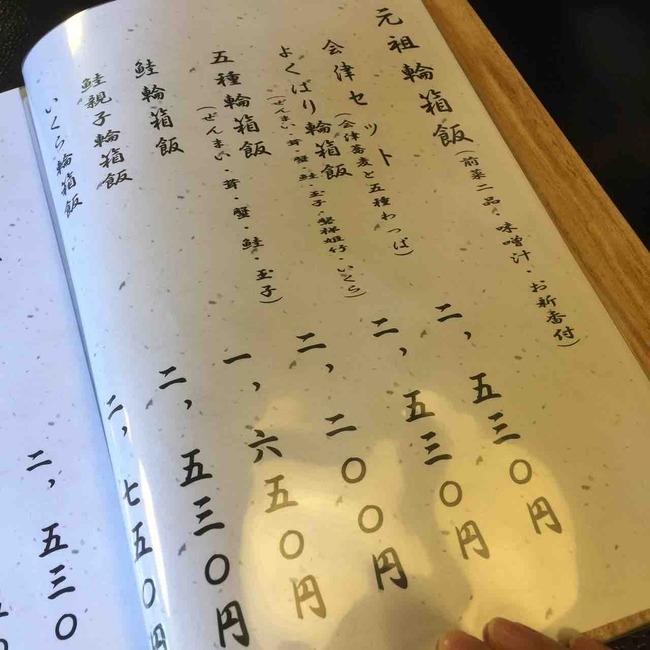 元祖輪箱飯(前菜二品・味噌汁・お新香付)
会津セット(会津蕎麦と五種わっぱ) 二、五三〇円
よくばり輪箱飯 二、五三〇円
(ぜんまい・茸・蟹・鮭・玉子・磐梯姫竹・いくら)
五種輪箱飯 二、二〇〇円
(ぜんまい・茸・蟹・鮭・玉子)
鮭輪箱飯 一、六五〇円
鮭親子輪箱飯 二、五三〇円
いくら輪箱飯 二、七五〇円
二、五三〇